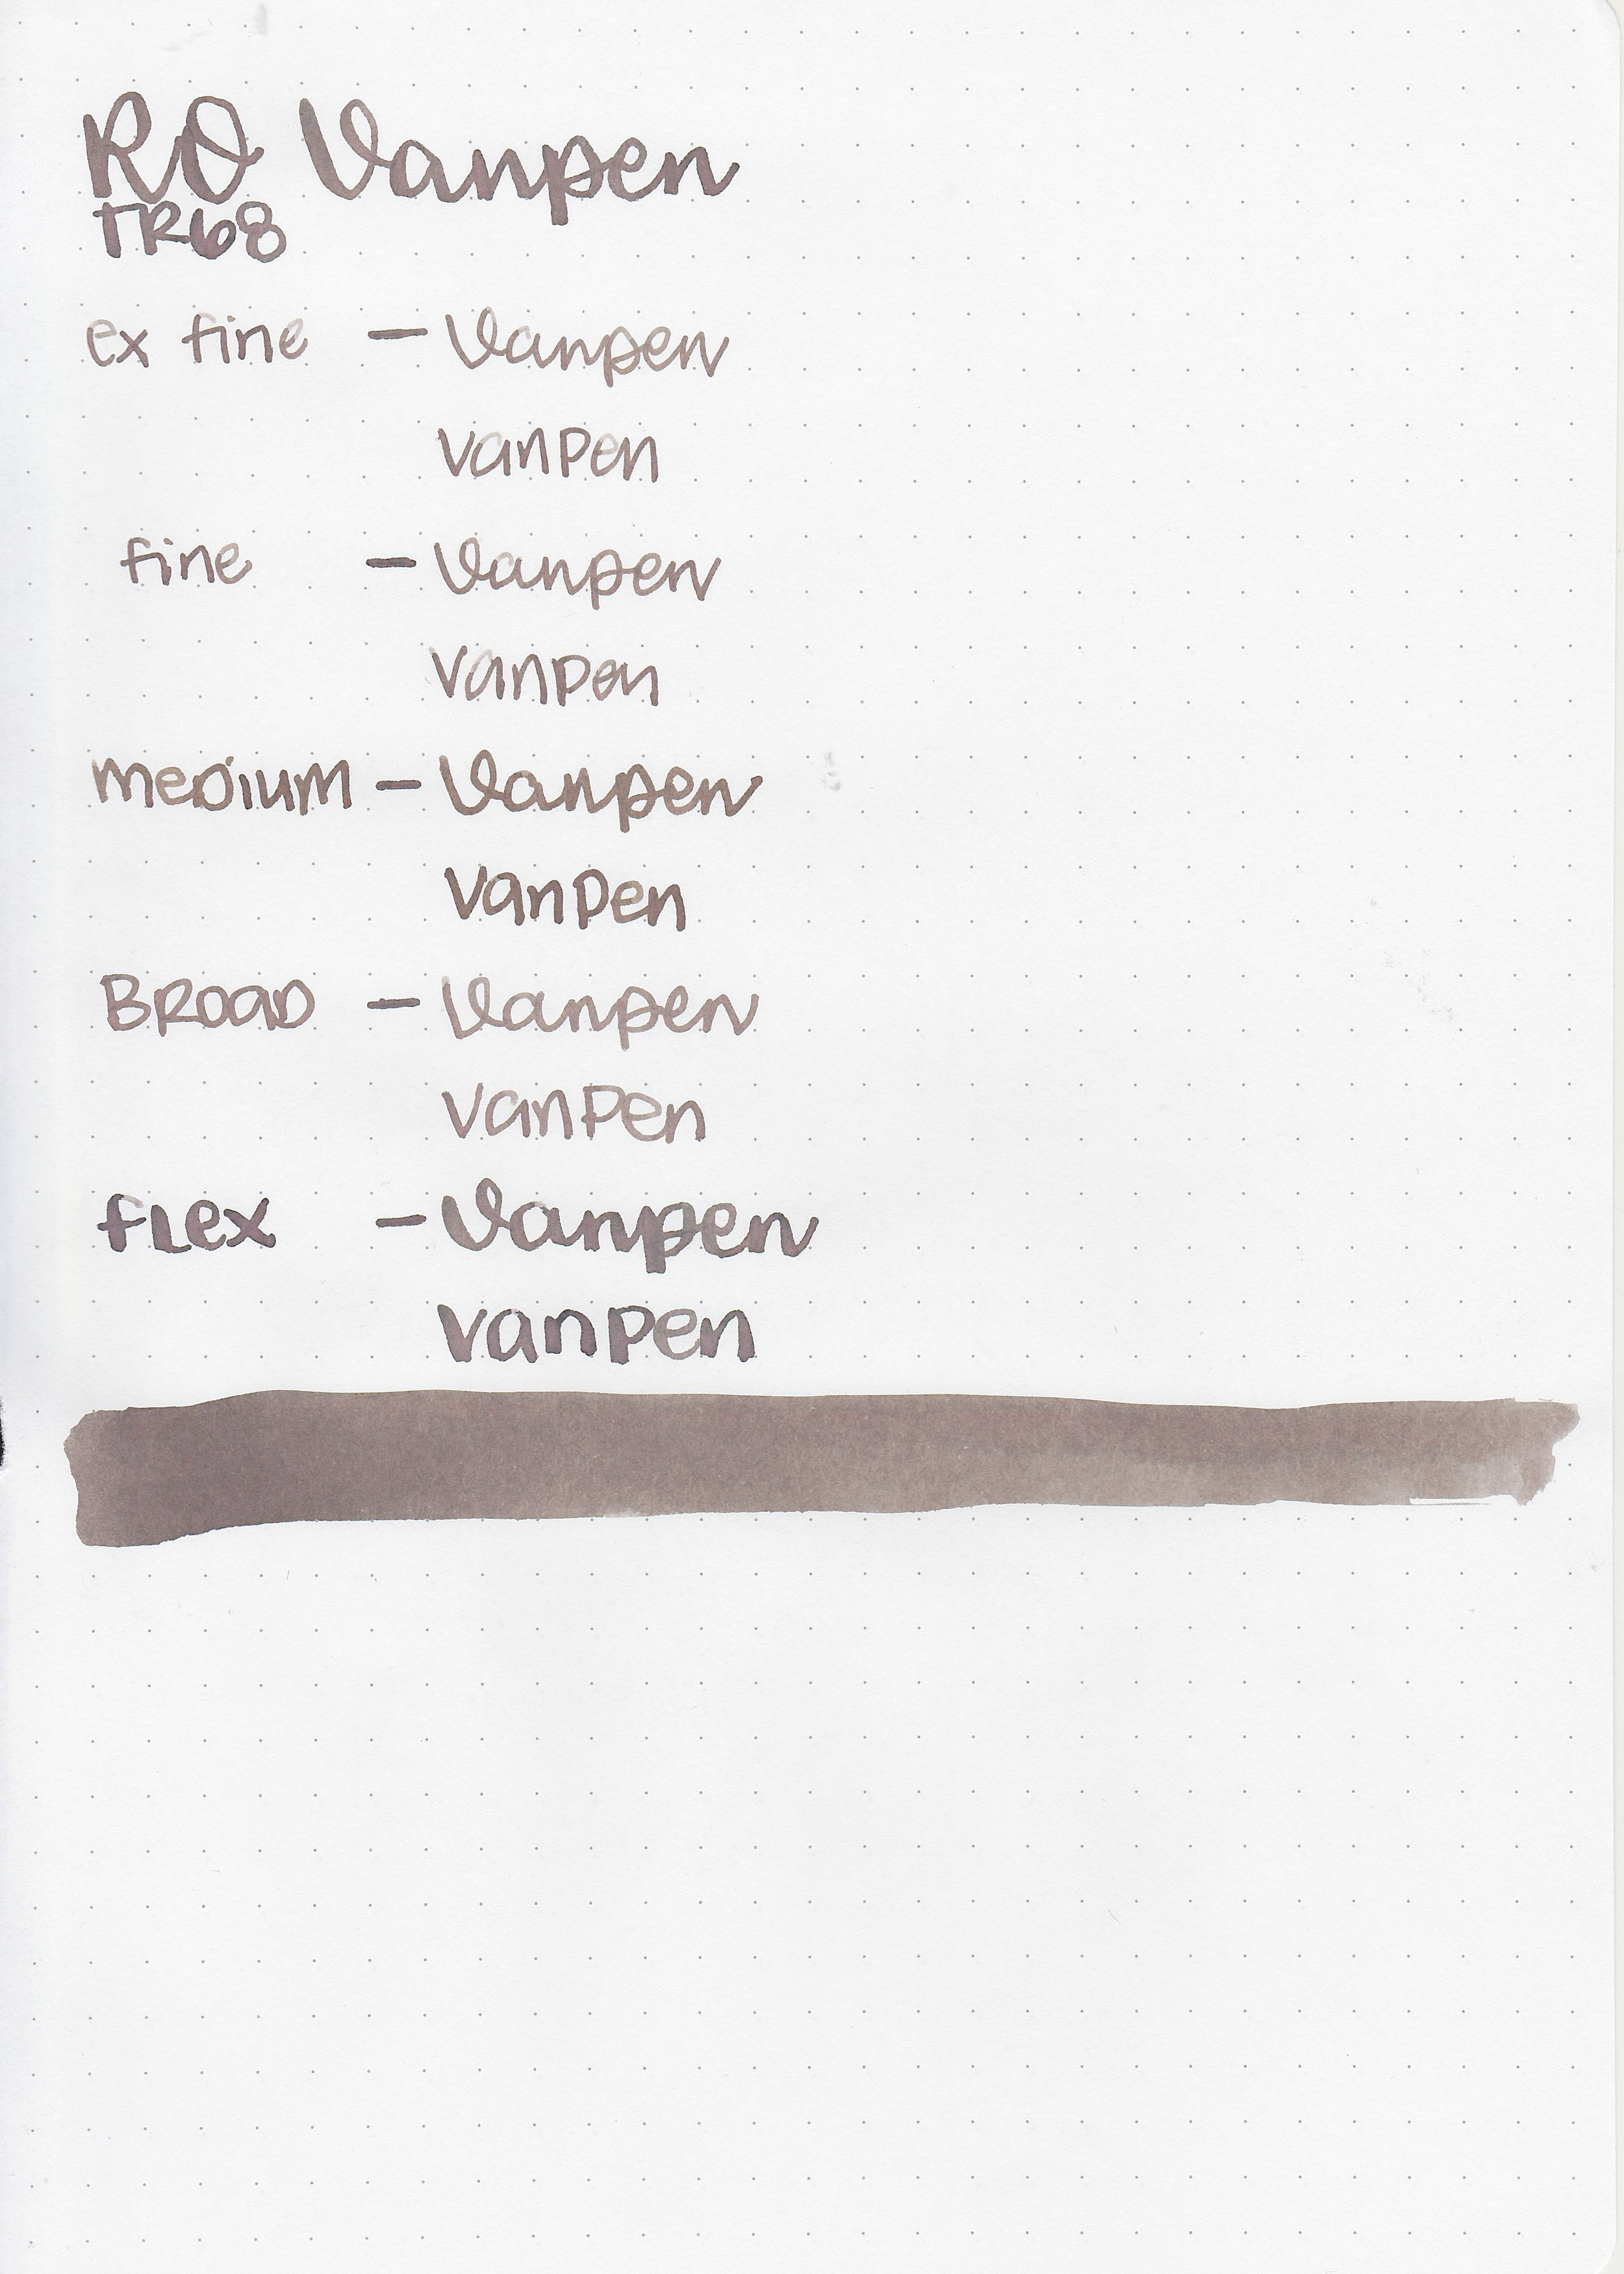 RO Vanpen
TR68
ex fine - Vanpen
vanpen
fine - Vanpen
vanpen
medium - Vanpen
vanpen
Broad - Vanpen
vanpen
flex - Vanpen
vanpen